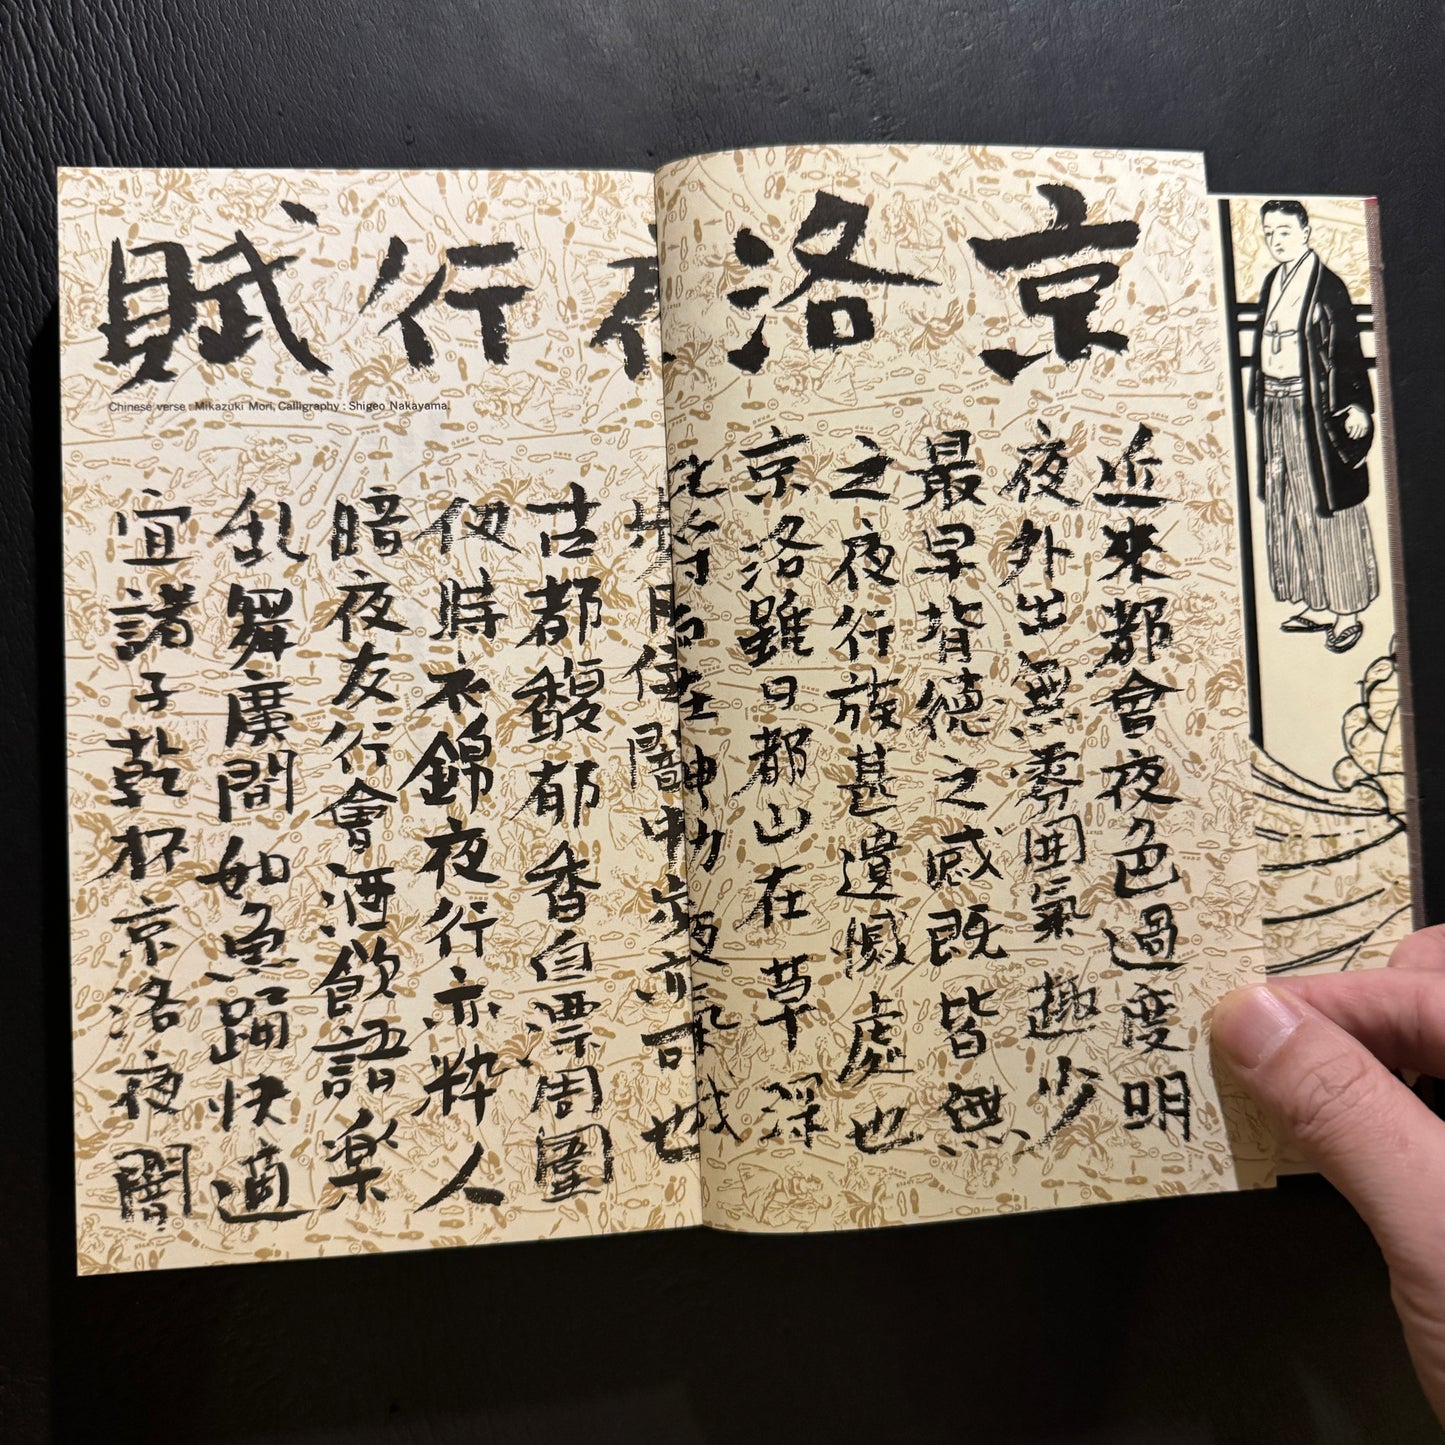 京洛夜行賦
Chinese verse : Mikazuki Mori, Calligraphy : Shigeo Nakayama.
近來都會夜色過度明
夜外出無雰囲氣趣少
最早背徳之感既皆無
之夜行族甚遺憾處也
京洛雖曰都山在草深
夜氣
闇中歩亦可也
古都馥郁香自漂周圍
仮時衣錦夜行亦粋人
暗夜友行會酒飲語楽
乱舞廣間如魚踊快適
宜諸子乾杯京洛夜闇